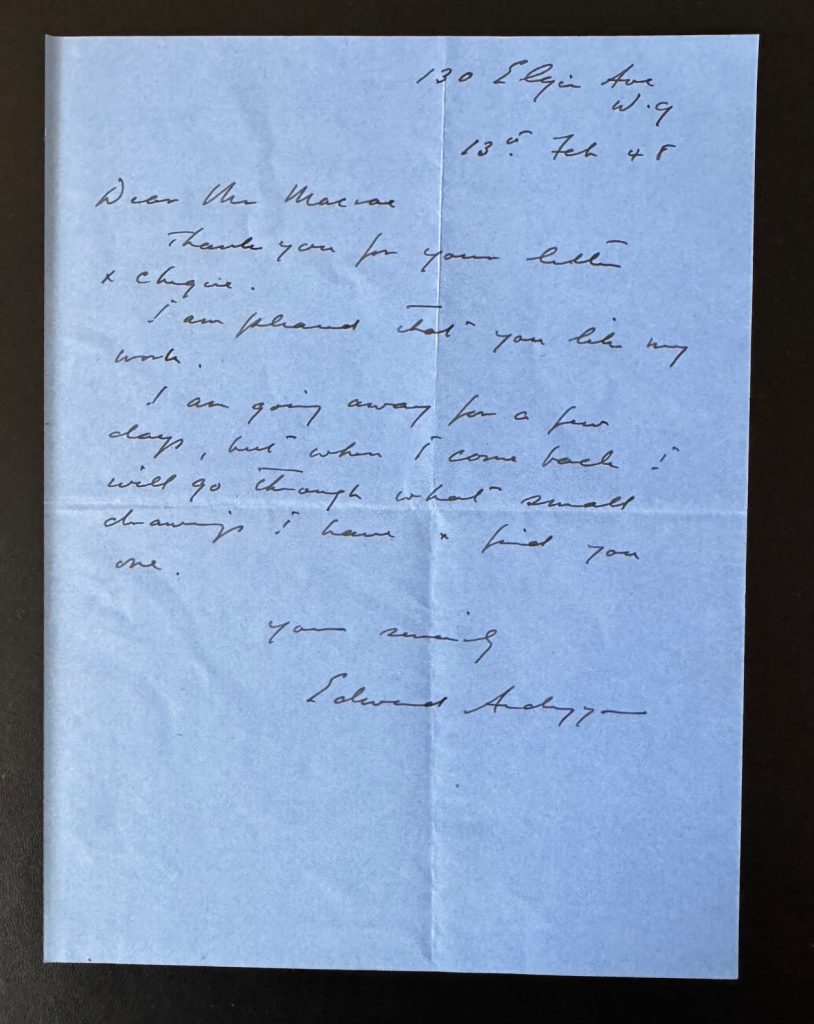 130 Elgin Ave
W.9
13th Feb 48
Dear Mr Macrae
Thank you for your letter
& cheque.
I am pleased that you like my
work.
I am going away for a few
days, but when I come back I
will go through what small
drawings I have & find you
one.
Yours sincerely
Edward Ardizzone